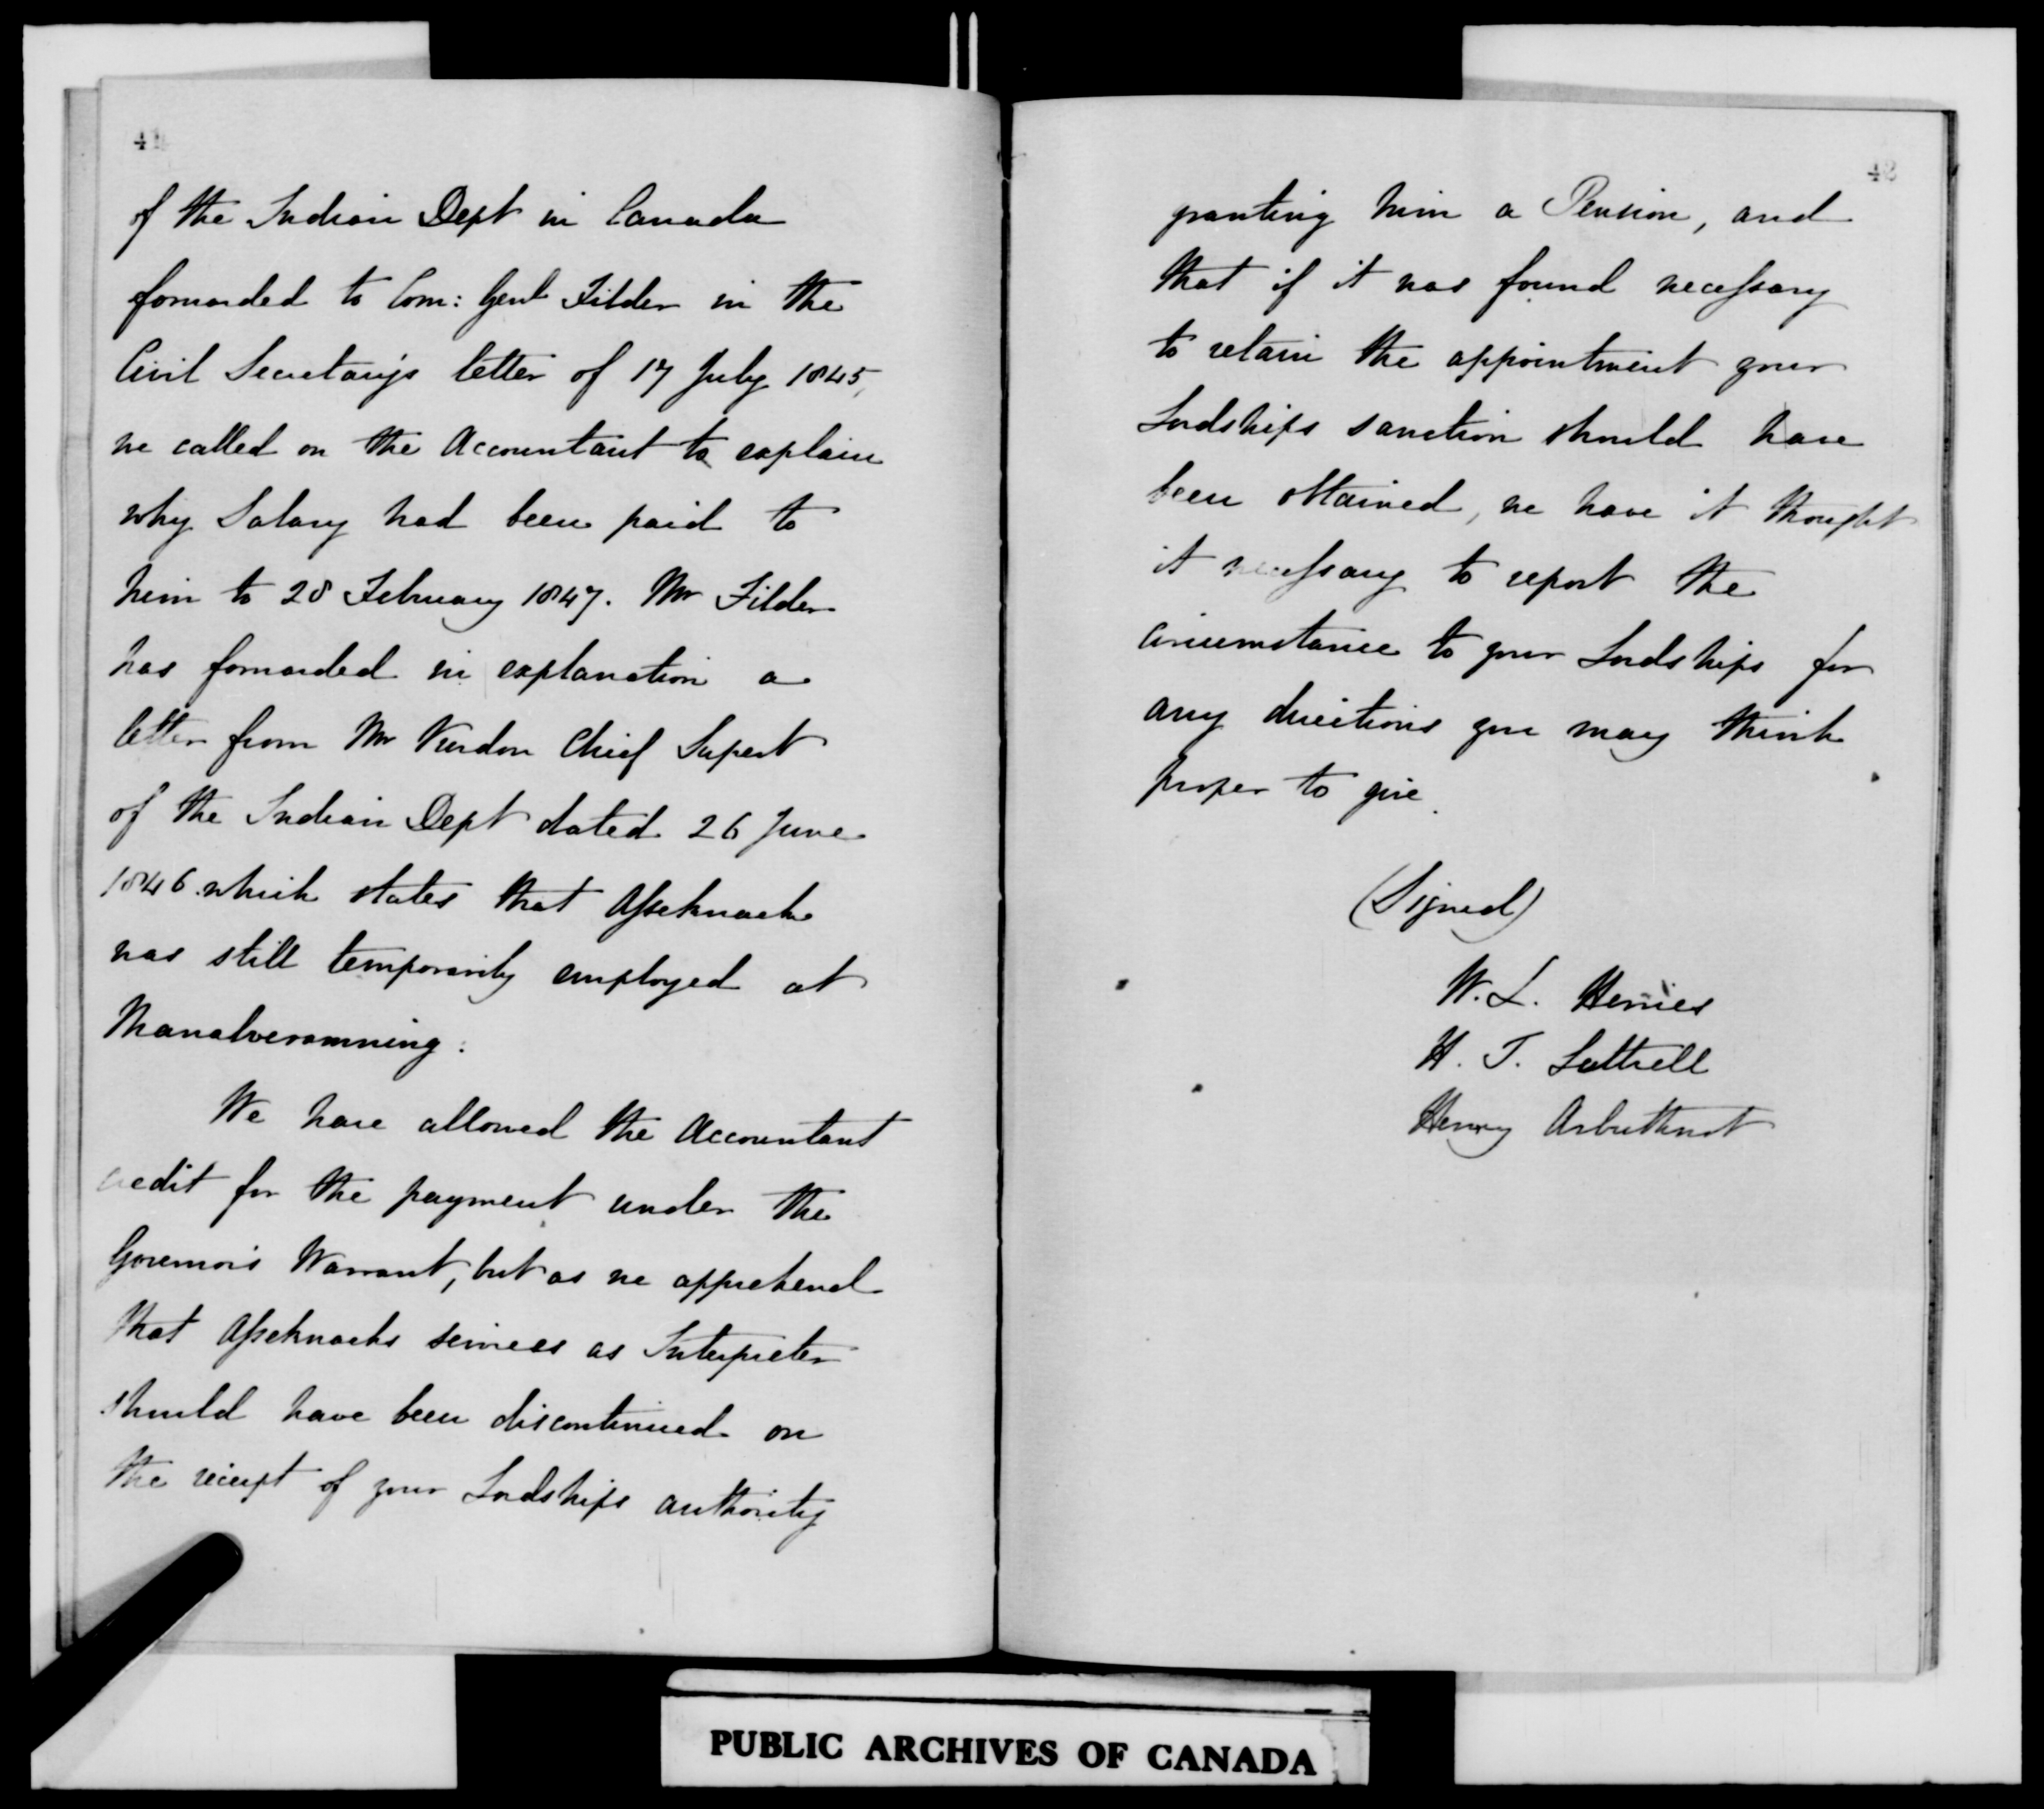 41
of the Indian Dept in Canada
forwarded to Com: Genl Filder in the
Civil Secretary's letter of 17 July 1845,
we called on the Accountant to explain
why Salary had been paid to
him to 28 February 1847. Mr Filder
has forwarded in explanation a
letter from Mr Vardon Chief Supert
of the Indian Dept dated 26 June
1846 which states that Asseknack
was still temporarily employed at
We have allowed the Accountant
credit for the payment under the
Governor's Warrant, but as we apprehend
that Asseknacks services as Interpreter
should have been discontinued on
the receipt of your Lordships authority
42
granting him a Pension, and
that if it was found necessary
to retain the appointment your
Lordships sanction should have
been obtained, we have it thought
it necessary to report the
circumstance to your Lordships for
any directions you may think
proper to give.
(Signed)
W. L. Herries
H. F. Luttrell
Henry Arbuthnot
PUBLIC ARCHIVES OF CANADA